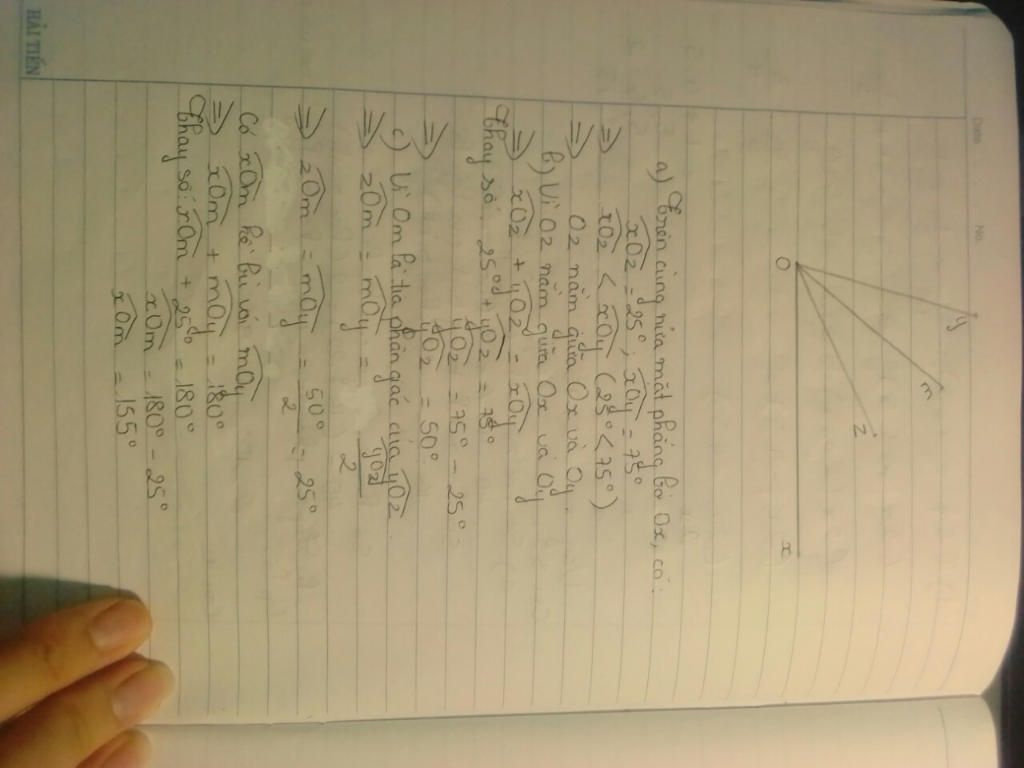 Date No.
y
m
z
O
x
a) Trên cùng nửa mặt phẳng bờ Ox, có:
xOz = 25°; xOy = 75°
=> xOz < xOy (25° < 75°)
=> Oz nằm giữa Ox và Oy.
b) Vì Oz nằm giữa Ox và Oy
=> xOz + yOz = xOy
Thay số: 25° + yOz = 75°
yOz = 75° - 25°
=> yOz = 50°
c) Vì Om là tia phân giác của yOz
=> zOm = mOy = yOz/2
=> zOm = mOy = 50°/2 = 25°
Có xOm kề bù với mOy
=> xOm + mOy = 180°
Thay số: xOm + 25° = 180°
xOm = 180° - 25°
xOm = 155°
HẢI TIẾN